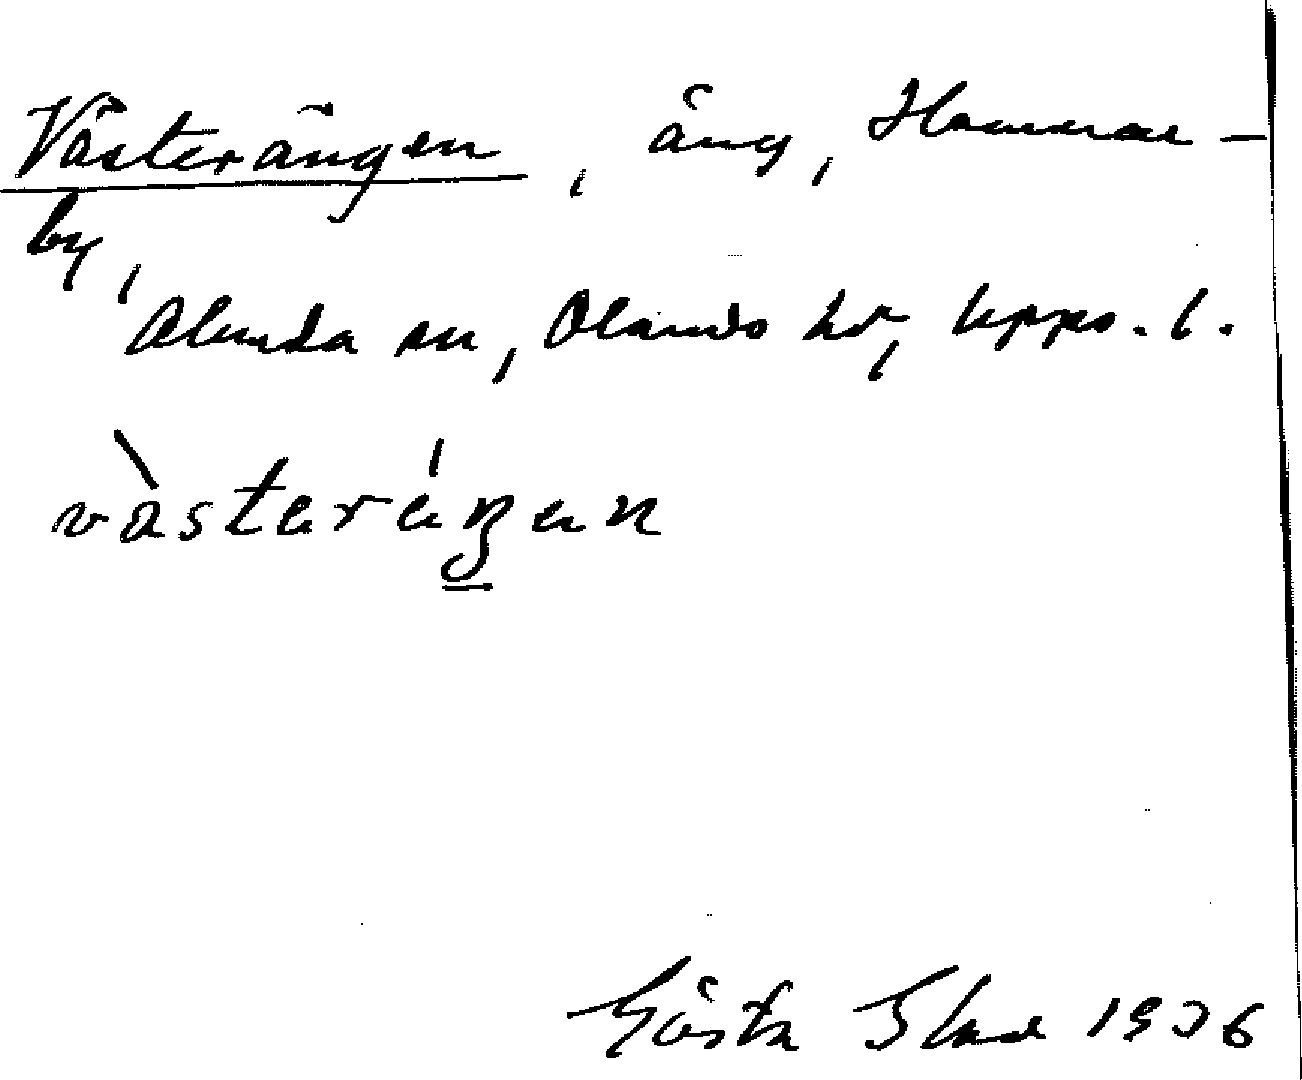 Västerängen, äng, Hammar-
by,
Alunda sn, Olands hd, Upps. l.
västeräŋen
Gösta 1936